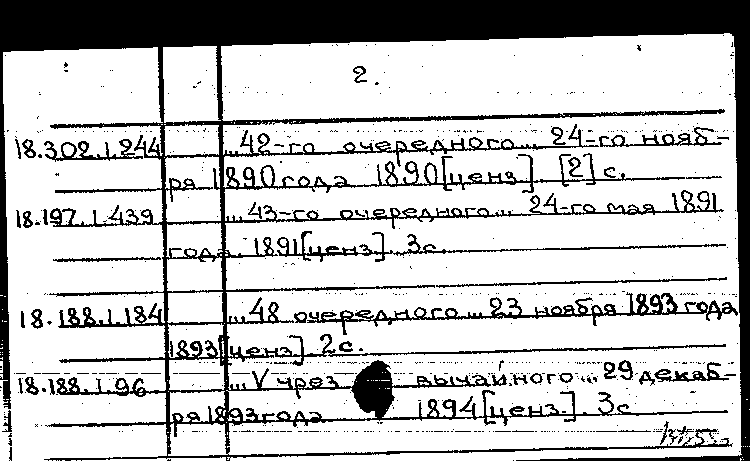 2.
18.302.1.244 ...42-го очередного... 24-го нояб-
ря 1890 года 1890 [ценз]. [2] с.
18.197.1.439 ...43-го очередного... 24-го мая 1891
года. 1891 [ценз]. 3с.
18.188.1.184 ...48 очередного... 23 ноября 1893 года
1893 [ценз] 2с.
18.188.1.96 ...V чрез вычайного... 29 декаб-
ря 1893 года 1894 [ценз.]. 3с